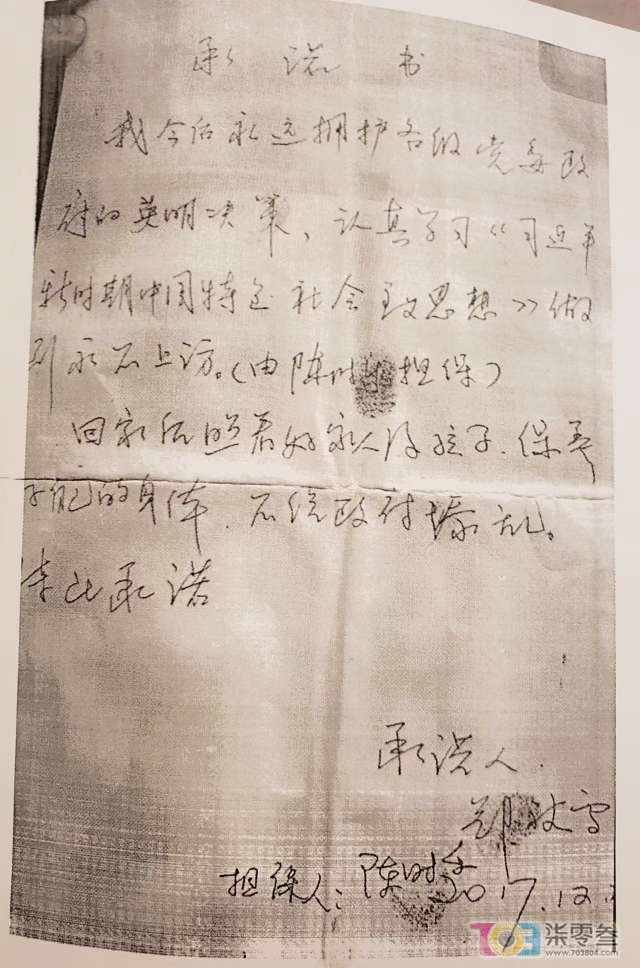 承诺书
我今后永远拥护各级党委政
府的英明决策、认真学习《习近平
新时期中国特色社会主义思想》做
到永不上访。(由陈时 担保)
回家后照看好家人及孩子.保养
好自己的身体.不给政府添乱。
特此承诺
承诺人.
郑 雪
担保人: 陈时
2017.12.
703 柒零叁
www.703804.com